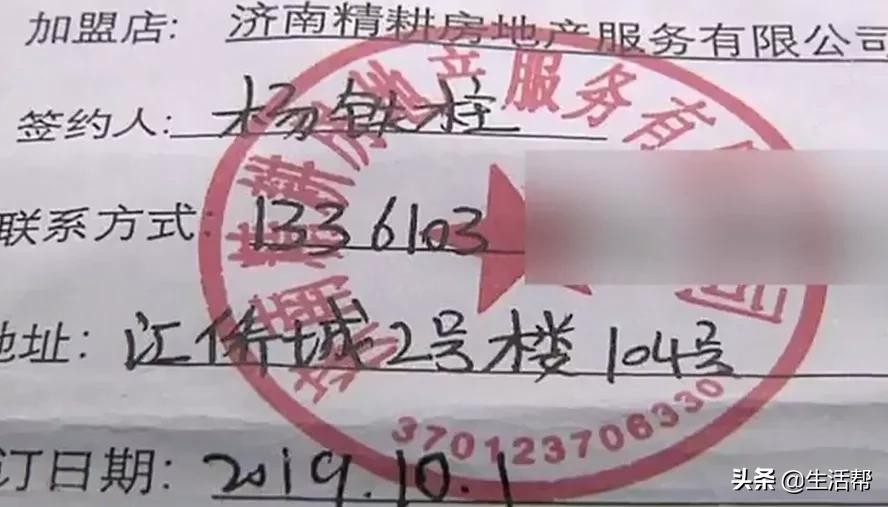 加盟店：济南精耕房地产服务有限公司
签约人：杨铁柱
联系方式：1336103
地址：汇侨城2号楼104号
订日期：2019.10.1
济南精耕房地产服务有限公司
370123706330
头条 @生活帮